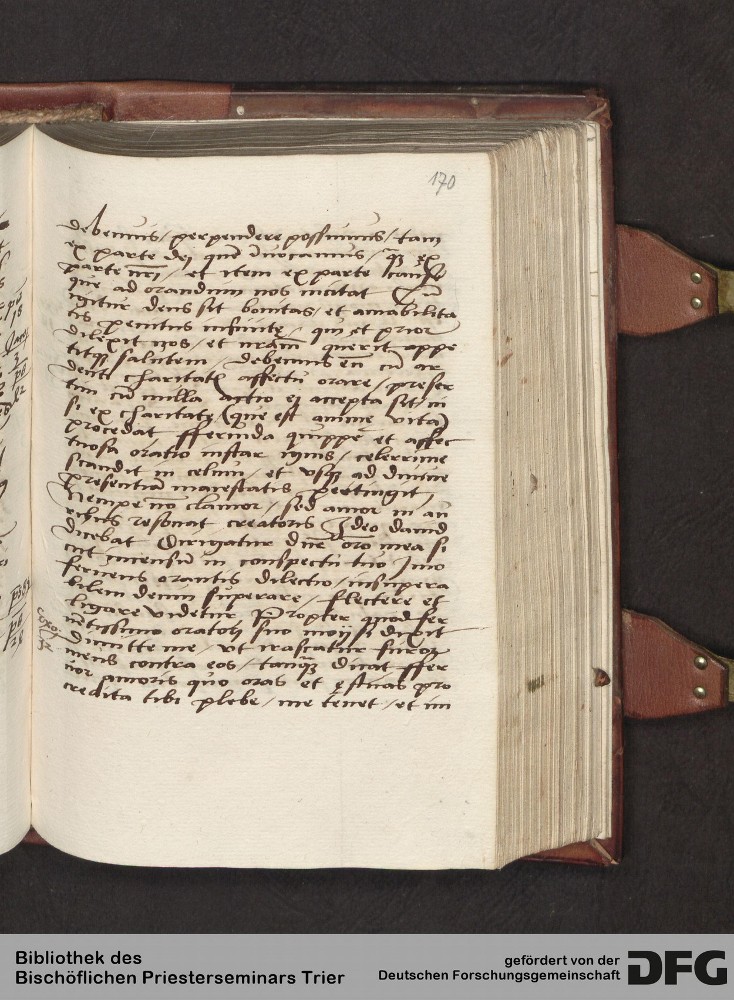 170
debemus / perpendere possumus / tam
ex parte dej quē Inuocamus / q̄ȝ ex
parte nr̄j / et item ex parte
que ad orandum nos incitat Cū
igitur deus sit bonitas / et amabilita
tis penitus infinitę / qui et prior
dilexit nos / et nr̄am querit appe
titqȝ salutem / debemus en̄ cū ar
denti charitatis affectu orare / preser
tim cū nulla actio ej accepta sit / ni
si ex charitate (que est anime vita)
procedat fferuida quippe et affec
tuosa oratio instar ignis / celerrime
scandit in celum / et vsqȝ ad diuine
presentiam maiestatis pertingit /
Nempe nō clamor / sed amor in au
ribus resonat creatoris Ideo dauid
dicebat Dirigatur dn̄e or̄o mea si
cut incensū in conspectu tuo Imo
feruens orantis dilectio / insupera
bilem deum superare / flectere et
ligare videtur Propter quod fer
uētissimo oratorj suo moijsi dixit
dimitte me / vt irascatur furor
meus contra eos / tanqȝ dicat ffer
uor amoris quo oras et ęstuas pro
credita tibi plebe / me tenet / et im
Bibliothek des
Bischöflichen Priesterseminars Trier
gefördert von der
Deutschen Forschungsgemeinschaft
DFG